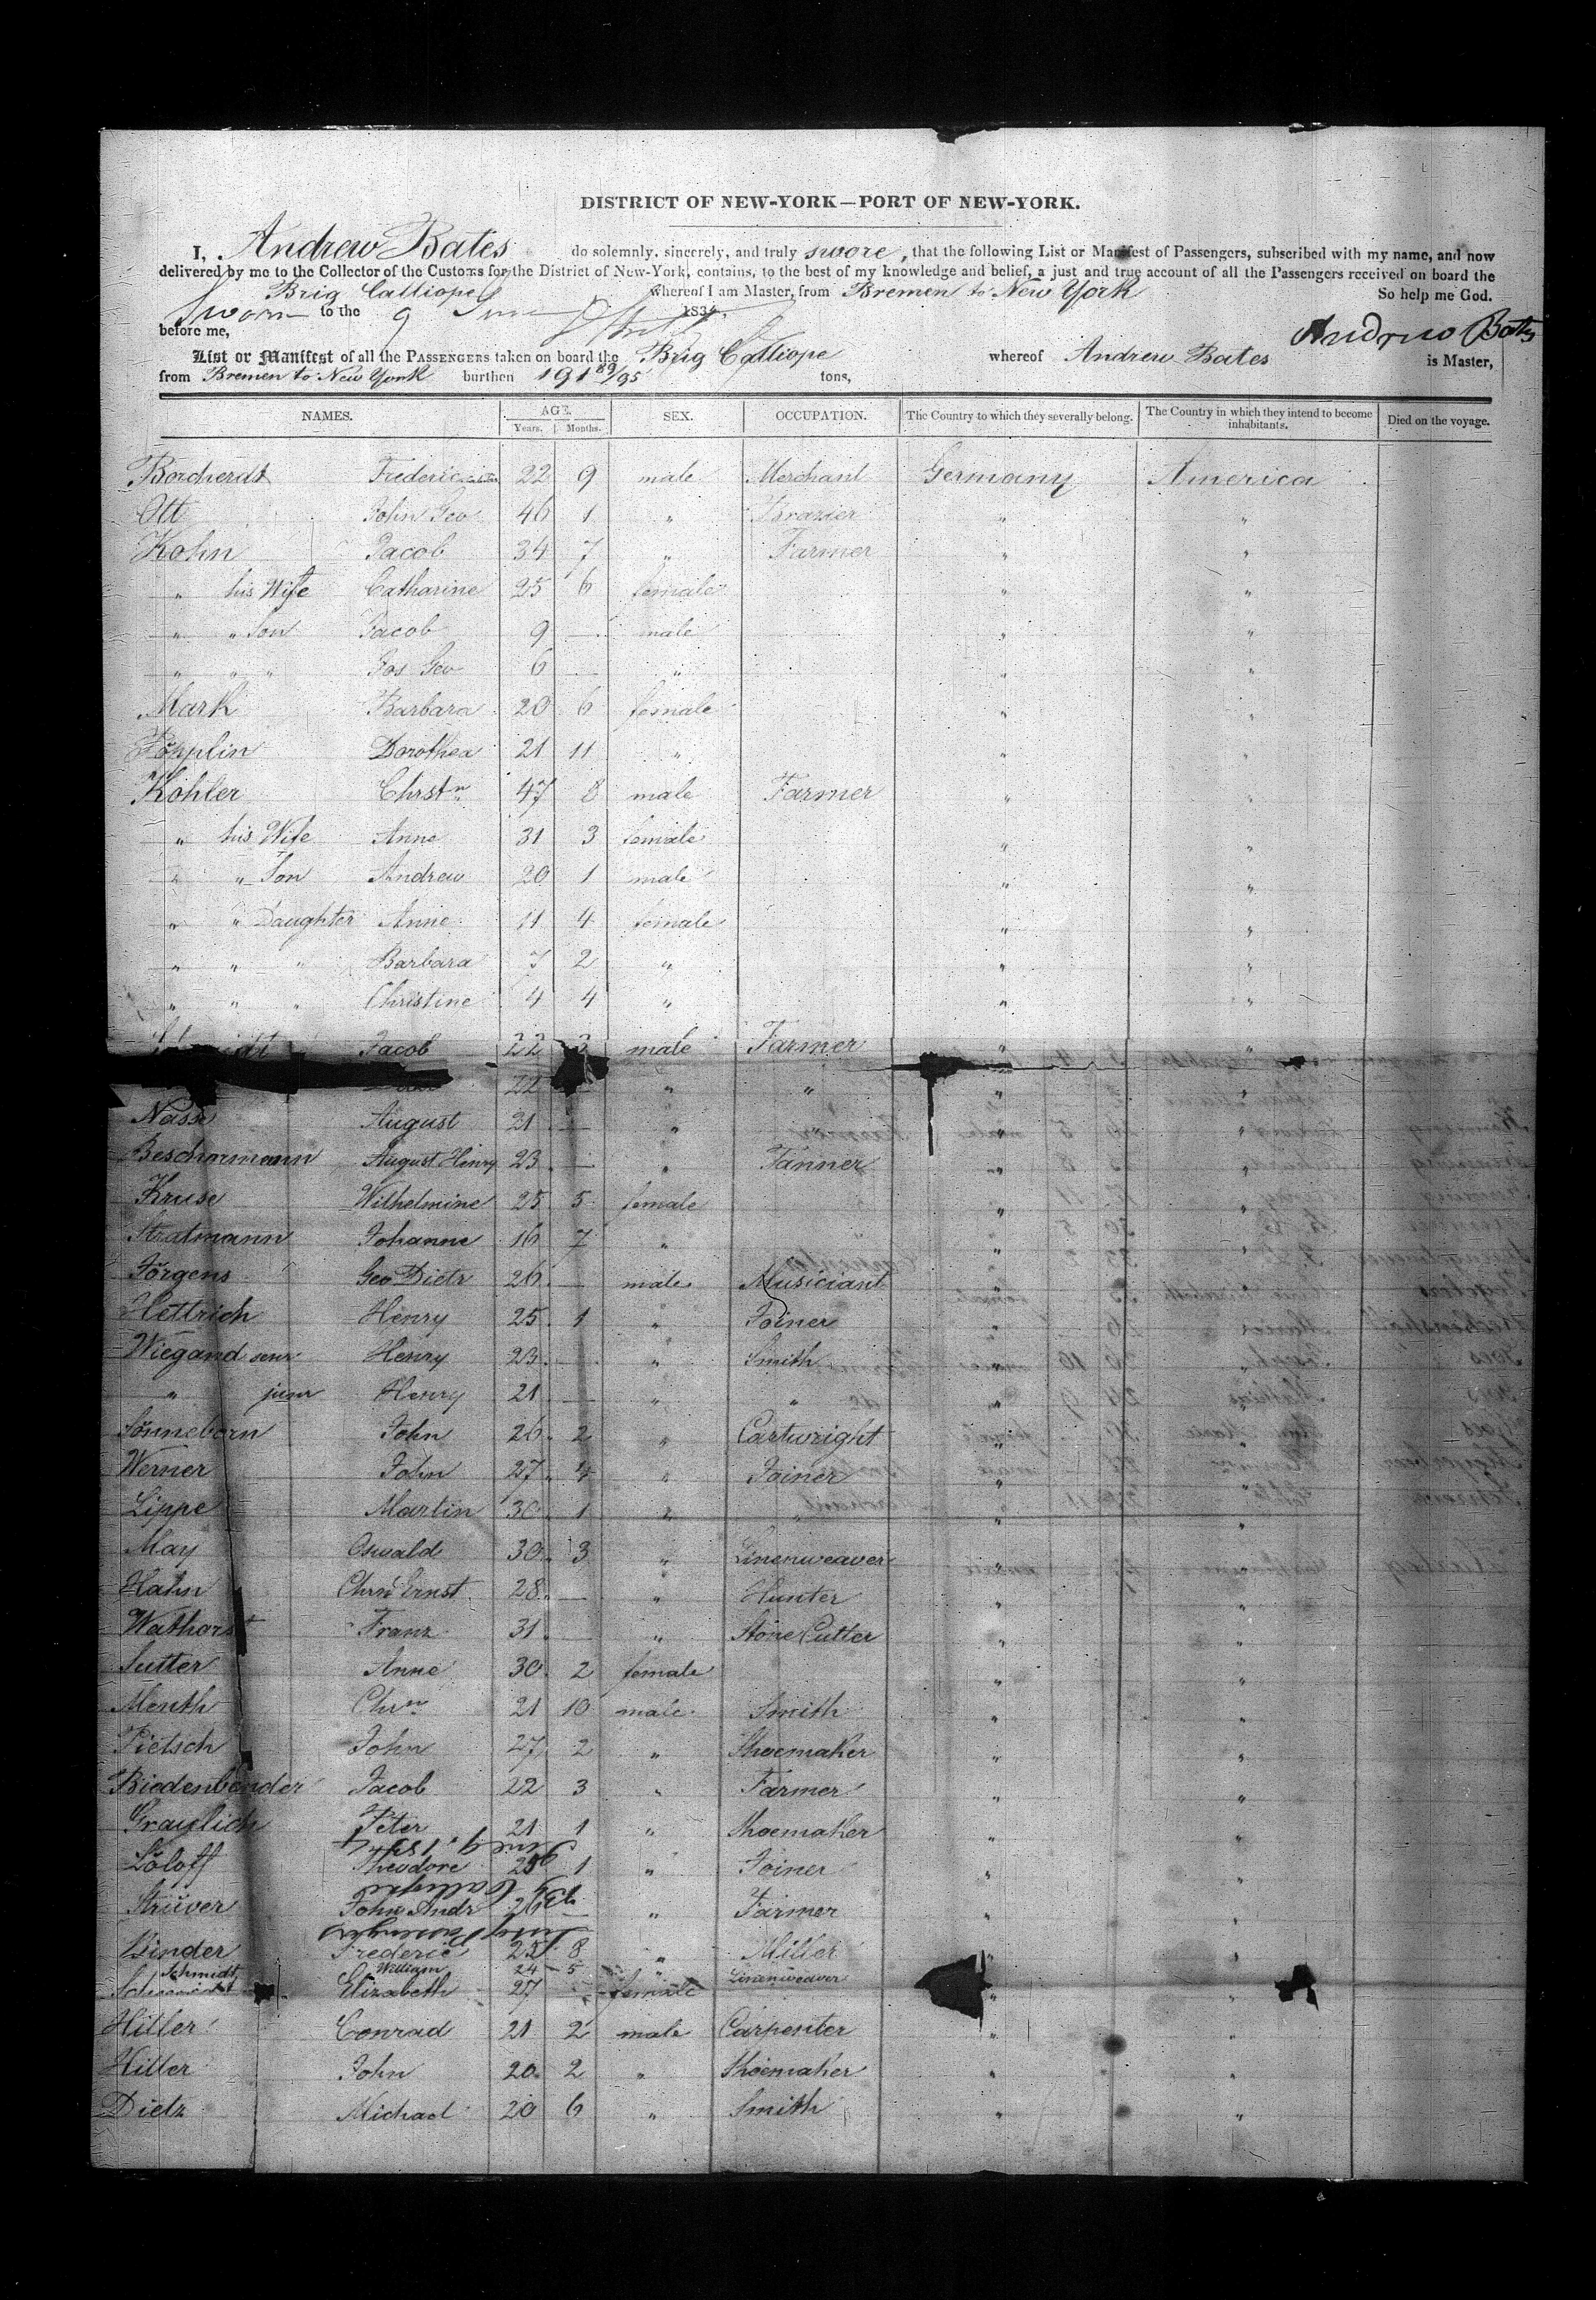 DISTRICT OF NEW-YORK—PORT OF NEW-YORK.
I, Andrew Bates do solemnly, sincerely, and truly swore, that the following List or Manifest of Passengers, subscribed with my name, and now
delivered by me to the Collector of the Customs for the District of New-York, contains, to the best of my knowledge and belief, a just and true account of all the Passengers received on board the
Brig Calliope whereof I am Master, from Bremen to New York So help me God.
Sworn to the 9 June 1834.
before me, Andrew Bates
List or Manifest of all the PASSENGERS taken on board the Brig Calliope whereof Andrew Bates is Master,
from Bremen to New York burthen 191 89/95 tons,
NAMES. AGE. SEX. OCCUPATION. The Country to which they severally belong. The Country in which they intend to become inhabitants. Died on the voyage.
Years. Months.
Borcherdt Frederic 22 9 male Merchant Germany America
Ott John Geo 46 1 " Brazier " "
Kohn Jacob 34 7 " Farmer " "
" his Wife Catharine 25 6 female " "
" " Son Jacob 9 — male " "
" " " Jos Geo 6 — " " "
Mark Barbara 20 6 female " "
Pöpplin Dorothea 21 11 " " "
Kohler Chrstn 47 8 male Farmer " "
" his Wife Anne 31 3 female " "
" " Son Andrew 20 1 male " "
" " Daughter Anne 11 4 female " "
" " " Barbara 7 2 " " "
" " " Christine 4 4 " " "
Jacob 22 3 male Farmer " "
22 " " " "
Nasse August 21 — " " "
Beschormann August Henry 23 — " Tanner " "
Kruse Wilhelmine 25 5 female " "
Stratmann Johanne 16 7 " " "
Jörgens Geo Dietr 26 — male Musiciant " "
Hettrich Henry 25 1 " Joiner " "
Wiegand senr Henry 23 — " Smith " "
" junr Henry 21 — " " " "
Sönneborn John 26 2 " Cartwright " "
Werner John 27 4 " Joiner " "
Lippe Martin 30 1 " " " "
May Oswald 30 3 " Linenweaver " "
Hahn Chrn Ernst 28 — " Hunter " "
Wathorst Franz 31 — " Stone Cutter " "
Sutter Anne 30 2 female " "
Menth Chrn 21 10 male Smith " "
Pietsch John 27 2 " Shoemaker " "
Biedenbender Jacob 22 3 " Farmer " "
Graylich Peter 21 1 " Shoemaker " "
June 9. 1834
Löloff Theodore 25 1 " Joiner " "
Bg Calliope
Strüver John Andr 26 — " Farmer " "
Binder Frederic 25 8 " Miller " "
Schmidt William 24 5 " Linenweaver
Elizabeth 27 — female " "
Hiller Conrad 21 2 male Carpenter " "
Hiller John 20 2 " Shoemaker " "
Dietz Michael 20 6 " Smith " "